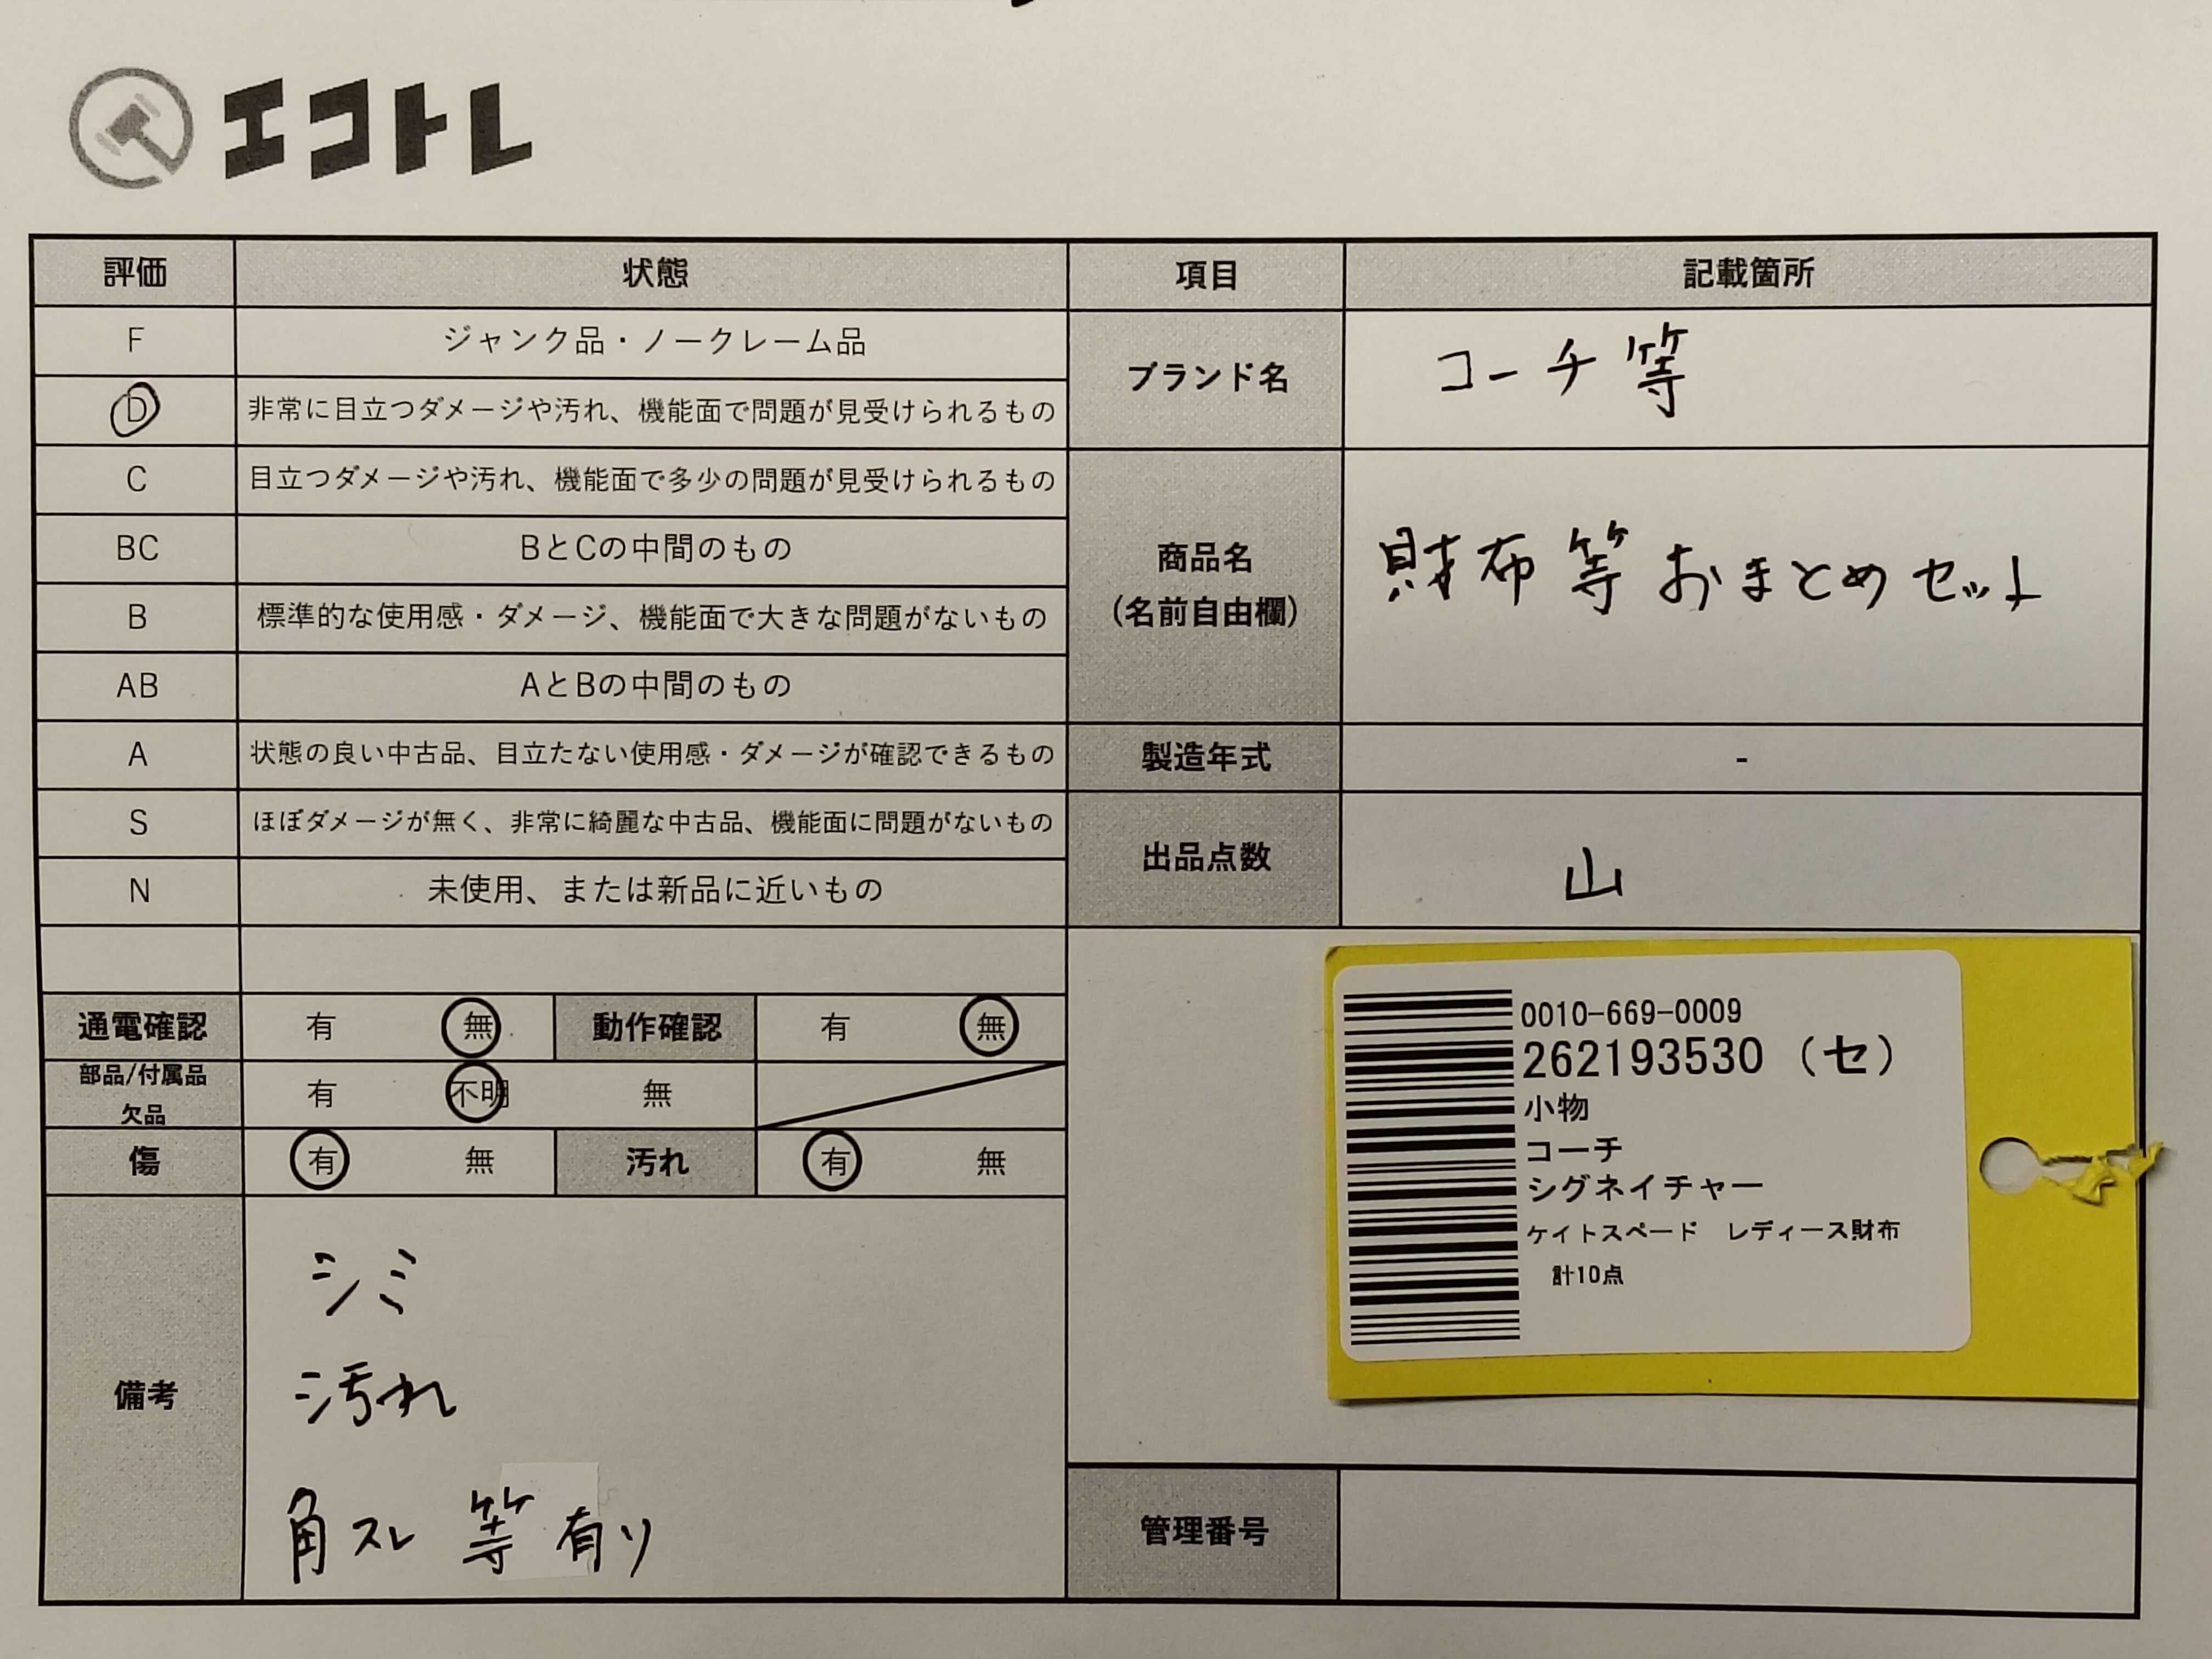 エコトレ
評価 状態 項目 記載箇所
F ジャンク品・ノークレーム品
D 非常に目立つダメージや汚れ、機能面で問題が見受けられるもの
ブランド名 コーチ等
C 目立つダメージや汚れ、機能面で多少の問題が見受けられるもの
BC BとCの中間のもの
商品名
(名前自由欄)
財布等おまとめセット
B 標準的な使用感・ダメージ、機能面で大きな問題がないもの
AB AとBの中間のもの
A 状態の良い中古品、目立たない使用感・ダメージが確認できるもの
製造年式 -
S ほぼダメージが無く、非常に綺麗な中古品、機能面に問題がないもの
出品点数 山
N 未使用、または新品に近いもの
通電確認 有 無 動作確認 有 無
部品/付属品
欠品
有 不明 無
傷 有 無 汚れ 有 無
備考
シミ
汚れ
角スレ等有り
0010-669-0009
262193530 (セ)
小物
コーチ
シグネイチャー
ケイトスペード レディース財布
計10点
管理番号